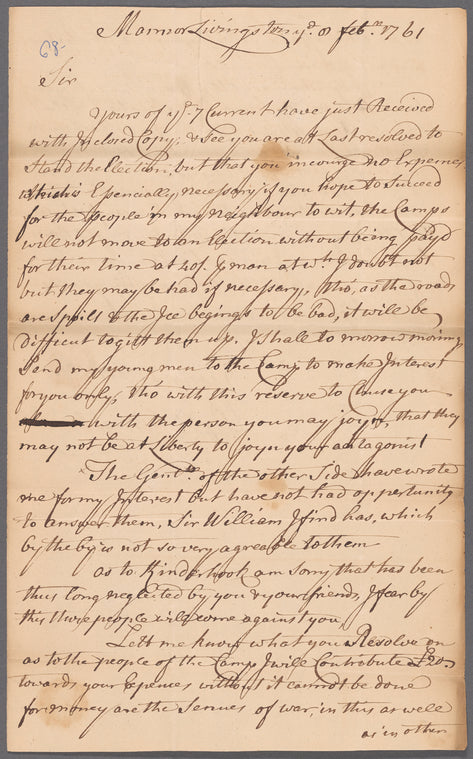 68
Mannor Livingston ye. 8 febr. 1761
Sir
Yours of ye. 7 Current have just Received
with Inclosed Copy, & See you are at Last resolved to
Stand the Election, but that you incourge no Expences
which is Esencially necessary if you hope to Succeed
for the People in my Neighbour to wit, the Camps
will not move to an Election without being pay'd
for their time at 40/. ye man at wh. I doubt not
but they may be had if necessary, tho, as the roads
are spoilt & the Ice begings to be bad, it will be
Difficult to gitt them up, I shall to morrow morning
Send my young men to the Camp to make Interest
for you only, tho with this reserve to Chuse you
with the person you may joyn, that they
may not be at Liberty to joyn your antagonist
The Gentn. of the other Side have wrote
me for my Interest but have not had oppertunity
to answer them, Sir William I find has, which
by the by is not so very agreable to them
as to Kinderhook am Sorry that has been
thus long neglected by you & your friends, I fear by
this those people will come against you,
Lett me know what you Resolve on
as to the people of the Camp I will Contribute £20
towards your Expences without it cannot be done
for money are the Senues of war, in this as well
as in other